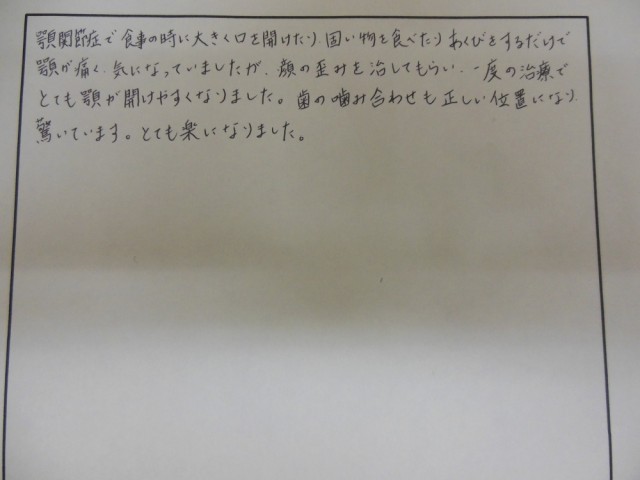 顎関節症で食事の時に大きく口を開けたり、固い物を食べたりあくびをするだけで
顎が痛く、気になっていましたが、顔の歪みを治してもらい、一度の治療で
とても顎が開けやすくなりました。歯の噛み合わせも正しい位置になり、
驚いています。とても楽になりました。